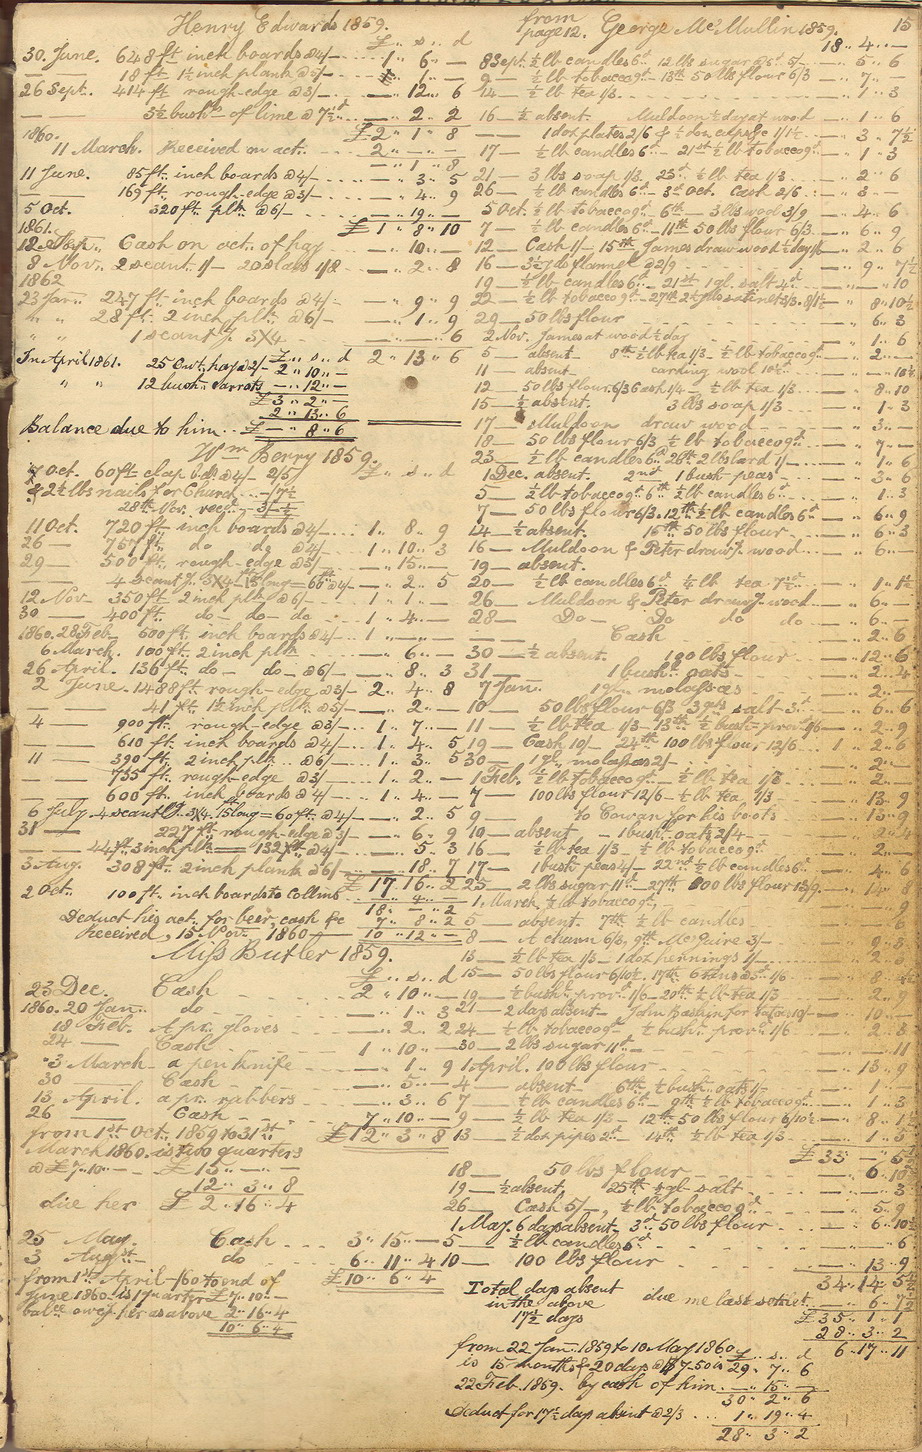 Henry Edwards 1859.
£ .. s .. d
30. June. 648 ft inch boards @4/- 1 .. 6 .. -
— 18 ft 1½ inch plank @5/- - .. 1 .. -
26 Sept. 414 ft rough-edge @3/- - .. 12 .. 6
— 3½ bush of lime @ 7½d - .. 2 .. 2
£2 .. 1 .. 8
1860.
11 March. Received on act. 2 .. - .. -
- .. 1 .. 8
11 June. 85 ft. inch boards @4/- - .. 3 .. 5
— 169 ft rough-edge @3/- - .. 4 .. 9
5 Oct. 320 ft. plk @6/- - .. 19 .. -
£ 1 .. 8 .. 10
1861.
12 Sep. Cash on act. of hay - .. 10 .. -
8 Nov. 2 scant. 1/- 20 slabs 1/8 - .. 2 .. 8
1862
23 Jan. 247 ft inch boards @4/- - .. 9 .. 9
" " 28 ft. 2 inch plk @6/- - .. 1 .. 9
" " 1 scant'g. 3X4 - .. - .. 6
2 .. 13 .. 6
In April 1861. 25 Cwt. hay @2/- £ .. s .. d
2 .. 10 .. -
" " 12 bush. carrots - .. 12 .. -
£3 .. 2 .. -
2 .. 13 .. 6
Balance due to him .. £- .. 8 .. 6
Wm Berry 1859.
£ .. s .. d
7 Oct. 60 ft clap bds @4/- 2/5
& 2½ lbs nails for Church - /7½
28th Nov. recd. - 3/-½
11 Oct. 720 ft inch boards @4/- 1 .. 8 .. 9
26 — 757 ft do do @4/- 1 .. 10 .. 3
29 — 500 ft. rough-edge @3/- - .. 15 .. -
— 4 scant'g. 3X4 15 long = 60 ft @4/- - .. 2 .. 5
12 Nov. 350 ft 2 inch plk @6/- 1 .. 1 .. -
30 — 400 ft. do - do - do 1 .. 4 .. -
1860. 28 Feb. 600 ft. inch boards @4/- 1 .. - .. -
6 March. 100 ft. 2 inch plk - .. 6 .. -
26 April. 136 ft. do — do - @6/- - .. 8 .. 3
2 June. 1488 ft rough-edge @3/- 2 .. 4 .. 8
— 41 ft 1½ inch plk @5/- - .. 2 .. -
4 — 900 ft. rough-edge @3/- 1 .. 7 .. -
— 610 ft. inch boards @4/- 1 .. 4 .. 5
11 — 390 ft. 2 inch plk .. @6/- 1 .. 3 .. 5
— 735 ft. rough-edge @3/- 1 .. 2 .. -
— 600 ft. inch boards @4/- 1 .. 4 .. -
6 July. 4 scant'g. 3X4. 15 long = 60 ft. @4/- - .. 2 .. 5
31 — 227 ft rough-edge @3/- - .. 6 .. 9
— 44 ft 3 inch plk = 132 ft @4/- - .. 5 .. 3
3 Aug. 308 ft. 2 inch plank @6/- - .. 18 .. 7
£17 .. 16 .. 2
2 Oct. 100 ft. inch boards to Collins - .. 4 .. -
18 .. - .. 2
Deduct his act. for beer, cash &c 7 .. 8 .. 2
Received, 15 Nov. 1860 10 .. 12 .. -
Miss Butler 1859.
£ .. s .. d
23 Dec. Cash 2 .. 10 .. -
1860. 20 Jan. do - .. 1 .. 3
18 Feb. A pr. gloves - .. 2 .. 2
24 — Cash 1 .. 10 .. -
3 March - a pen knife - .. 1 .. 9
30 — Cash - .. 5 .. -
13 April. a pr. rubbers - .. 3 .. 6
26 — Cash 7 .. 10 .. -
from 1st Oct. 1859 to 31st £12 .. 3 .. 8
March 1860. is two quarters
@ £7 .. 10 .. - £15 .. - .. -
12 .. 3 .. 8
due her £2 .. 16 .. 4
25 May. Cash 3 .. 15 .. -
3 August do 6 .. 11 .. 4
£10 .. 6 .. 4
from 1st April - 60 to end of
June 1860 is 1 quarter £7 .. 10 .. -
balce owey her as above 2 .. 16 .. 4
10 .. 6 .. 4
from page 12. George McMullin 1859. 15
18 .. 4 .. -
8 Sept. ½ lb candles 6d 12 lbs sugar @5d 5/- - .. 5 .. 6
9 — ½ lb tobacco 9d - 13th 50 lbs flour 6/3 - .. 7 .. -
14 — ½ lb tea 1/3 - .. 1 .. 3
16 — ½ absent. Muldoon ½ day at wood - .. 1 .. 6
— 1 doz plates 2/6 & ½ doz cups &c 1/1½ - .. 3 .. 7½
17 — ½ lb candles 6d - 21st ½ lb tobacco 9d - .. 1 .. 3
21 — 3 lbs soap 1/3. 23d. ½ lb tea 1/3 - .. 2 .. 6
26 — ½ lb candles 6d - 3d Oct. Cash 2/6 - .. 3 .. -
5 Oct. ½ lb tobacco 9d - 6th - 3 lbs wool 3/9 - .. 4 .. 6
7 — ½ lb candles 6d - 11th 50 lbs flour 6/3 - .. 6 .. 9
12 — Cash 1/- 15th James draw wood ½ day 1/6 - .. 2 .. 6
16 — 3½ yds flannel @2/9 - .. 9 .. 7½
19 — ½ lb candles 6d - 21st 1 gl. salt 4d - .. - .. 10
22 — ½ lb tobacco 9d - 27th 2½ yds satinet 3/3. 8/1½ - .. 8 .. 10½
29 — 50 lbs flour - .. 6 .. 3
2 Nov. James at wood ½ day - .. 1 .. 6
5 — absent - 8th ½ lb tea 1/3 - ½ lb tobacco 9d - .. 2 .. -
11 — absent carding wool 10½ - .. - .. 10½
12 — 50 lbs flour 6/3 Cash 1/4 - ½ lb tea 1/3 - .. 8 .. 10
15 — ½ absent. 3 lbs soap 1/3 - .. 1 .. 3
17 — Muldoon draw wood - .. 3 .. -
18 — 50 lbs flour 6/3 ½ lb tobacco 9d - .. 7 .. -
23 — ½ lb candles 6d 26th 2 lbs lard 1/- - .. 1 .. 6
1 Dec. absent. 2nd 1 bush peas - .. 3 .. 6
5 — ½ lb tobacco 9d 6th ½ lb candles 6d - .. 1 .. 3
7 — 50 lbs flour 6/3. 12th ½ lb candles 6d - .. 6 .. 9
14 — ½ absent. 15th 50 lbs flour - .. 6 .. 3
16 — Muldoon & Peter draw'g. wood - .. 6 .. -
19 — absent.
20 — ½ lb candles 6d ¼ lb tea 7½d - .. 1 .. 1½
26 — Muldoon & Peter draw'g. wood - .. 6 .. -
28 — Do - Do do do - .. 6 .. -
— Cash - .. 2 .. 6
30 — ½ absent. 100 lbs flour - .. 12 .. 6
31 — 1 bush. oats - .. 2 .. 4
7 Jan. 1 gln molasses - .. 2 .. -
10 — 50 lbs flour 6/3 3 gls salt 3d - .. 6 .. 6
11 — ½ lb tea 1/3 - 13th ½ bush prov. 1/6 - .. 2 .. 9
19 — Cash 10/- 24th 100 lbs flour 12/6 1 .. 2 .. 6
30 — 1 gl. molasses 2/- - .. 2 .. -
1 Feb. ½ lb tobacco 9d ½ lb tea 1/3 - .. 2 .. -
7 — 100 lbs flour 12/6 - ½ lb tea 1/3 - .. 13 .. 9
9 — to Cowan for his boots - .. 15 .. 9
10 — absent - 1 bush. oats 2/4 - .. 2 .. 4
16 — ½ lb tea 1/3 - ½ lb tobacco 9d - .. 2 .. -
17 — 1 bush peas 4/- 22nd ½ lb candles 6d - .. 4 .. 6
25 — 2 lbs sugar 11d - 27th 100 lbs flour 13/9 - .. 14 .. 8
1 March. ½ lb tobacco 9d - .. - .. 9
5 — absent. 7th ½ lb candles - .. - .. 6
8 — A churn 6/3, 9th McGuire 3/- - .. 9 .. 3
13 — ½ lb tea 1/3 - 1 doz herrings 1/- - .. 2 .. 3
15 — 50 lbs flour 6/10½, 17th 6 @3d 1/6 - .. 8 .. 4½
19 — ½ bush. prov. 1/6 - 20th ½ lb tea 1/3 - .. 2 .. 9
21 — 2 days absent - John for 10/- - .. 10 .. -
24 — ½ lb tobacco 9d ½ bush. prov. 1/6 - .. 2 .. 3
30 — 2 lbs sugar 11d - .. - .. 11
1 April. 100 lbs flour - .. 13 .. 9
4 — absent - 6th ½ bush. oats 1/- - .. 1 .. -
7 — ½ lb candles 6d - 9th ½ lb tobacco 9d - .. 1 .. 3
9 — ½ lb tea 1/3 12th 50 lbs flour 6/10½ - .. 8 .. 1½
13 — ½ doz pipes 2d - 14th ½ lb tea 1/3 - .. 1 .. 5
£33 .. - .. 5½
18 — 50 lbs flour - .. 6 .. 10½
19 — ½ absent, 25th 1 gl salt - .. - .. 3
26 — Cash 5/-, ½ lb tobacco 9d - .. 5 .. 9
1 May. 6 days absent - 3d. 50 lbs flour - .. 6 .. 10½
5 — ½ lb candles 6d - .. - .. 6
10 — 100 lbs flour - .. 13 .. 9
34 .. 14 .. 5½
Total days absent
in the above
17½ days
due me last settlet. - .. 6 .. 7½
£35 .. 1 .. 1
28 .. 3 .. 2
6 .. 17 .. 11
from 22 Jan. 1859 to 10 May 1860 £ .. s .. d
is 15 months & 20 days @ $7-50 is 29 .. 7 .. 6
22 Feb. 1859. by cash of him - .. 15 .. -
30 .. 2 .. 6
Deduct for 17½ days absent @ 2/3 ... 1 .. 19 .. 4
28 .. 3 .. 2